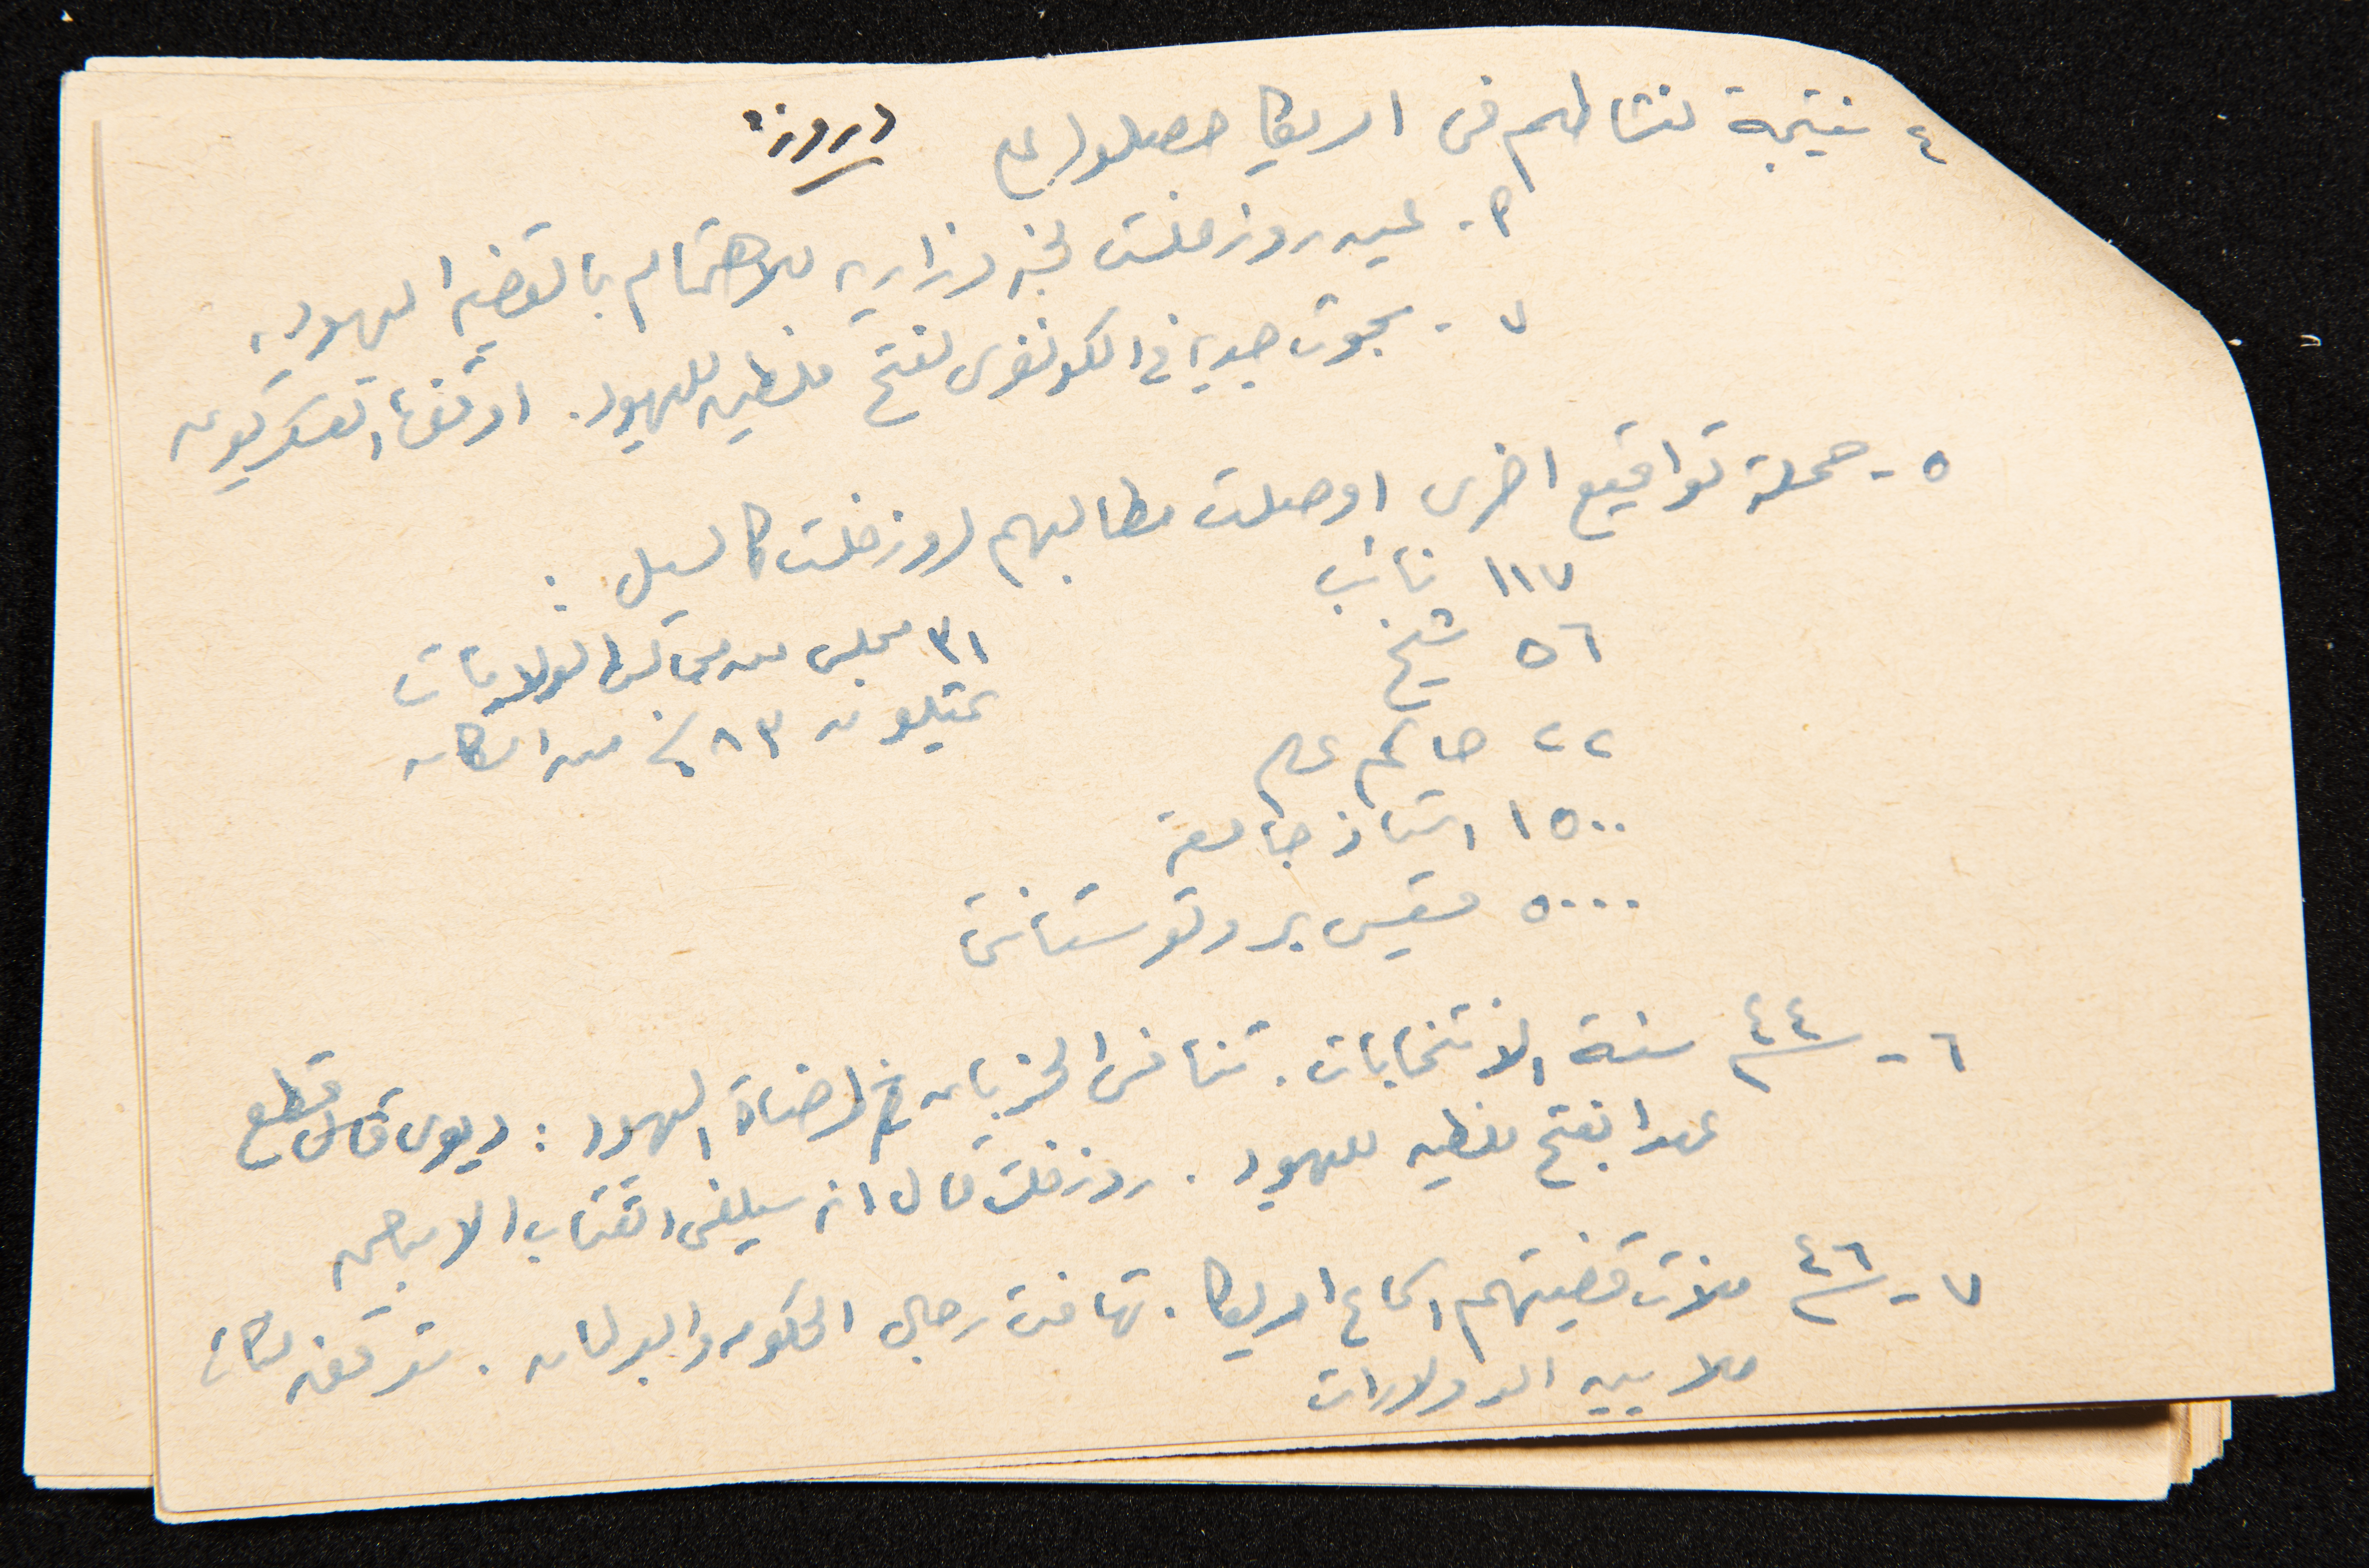 دروزه
٤ نتيجة نشاطهم في امريكا حصلوا على
٢- عين روزفلت لجنة وزارية للاهتمام بالقضية اليهودية
٧ - بحوث جدية في الكونغرس لفتح فلسطين لليهود. اوقفها العسكريون
٥- حملة تواقيع اخرى اوصلت مطالبهم لروزفلت كالسيل :
١١٧ نائب
٥٦ شيخ
٢٢ حاكم عام
١٥٠٠ استاذ جامعة
٥٠٠٠ قسيس بروتوستانتي
٣١ مجلس من مجالس الولايات
يمثلون ٨٣٪ من السكان
٦- ٤٤ سنة الانتخابات. تنافس الحزبان في ارضاء اليهود : ديوي قال قطع
عهدا بفتح فلسطين لليهود . روزفلت قال انه سيلغي الكتاب الابيض
٧- ٤٦ ملأت قضيتهم اسماع امريكا. تهافت رجال الحكومة والبرلمان.
ملايين الدولارات